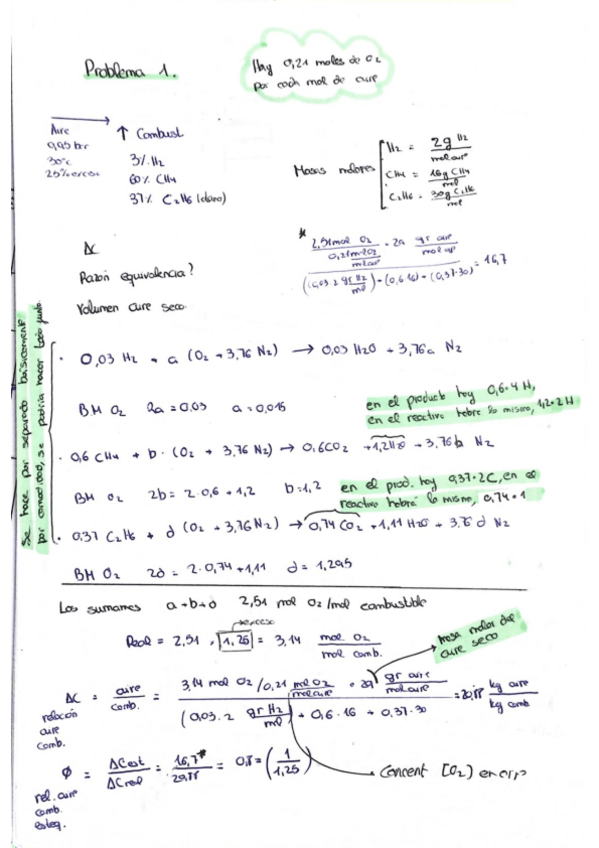 Problema 1.
Hay 0,21 moles de O2
por cada mol de aire
Aire
0,95 bar
30ºC
25% exceso
↑ Combust
3% H2
60% CH4
37% C2H6 (etano)
Masas molares
H2 = 2g H2 / mol
CH4 = 16g CH4 / mol
C2H6 = 30g C2H6 / mol
AC
Razón equivalencia?
Volumen aire seco
* (2,51 mol O2 / 0,21 mol O2/mol aire · 29 gr aire/mol aire) / ((0,03·2 gr H2/mol)+(0,6·16)+(0,37·30)) = 16,7
Se hace por separado básicamente
por comodidad, se podría hacer todo junto
· 0,03 H2 + a (O2 + 3,76 N2) → 0,03 H2O + 3,76a N2
BM O2 2a = 0,03 a = 0,015
en el producto hay 0,6·4 H,
en el reactivo habrá lo mismo, 1,2·2 H
· 0,6 CH4 + b · (O2 + 3,76 N2) → 0,6CO2 + 1,2H2O + 3,76b N2
BM O2 2b = 2·0,6 + 1,2 b = 1,2
en el prod. hay 0,37·2C, en el
reactivo habrá lo mismo, 0,74·1
· 0,37 C2H6 + d (O2 + 3,76 N2) → 0,74 CO2 + 1,11 H2O + 3,76 d N2
BM O2 2d = 2·0,74 + 1,11 d = 1,295
Los sumamos a+b+d 2,51 mol O2/mol combustible
→ exceso
Real = 2,51 · 1,25 = 3,14 mol O2 / mol comb.
masa molar del
aire seco
AC = aire / comb. = (3,14 mol O2 / 0,21 mol O2/mol aire · 29 gr aire/mol aire) / (0,03·2 gr H2/mol + 0,6·16 + 0,37·30) = 20,88 kg aire / kg comb
relación
aire
comb.
Ø = ACest / ACreal = 16,7* / 20,88 = 0,8 = (1 / 1,25)
rel. aire
comb.
esteq.
Concent [O2] en aire